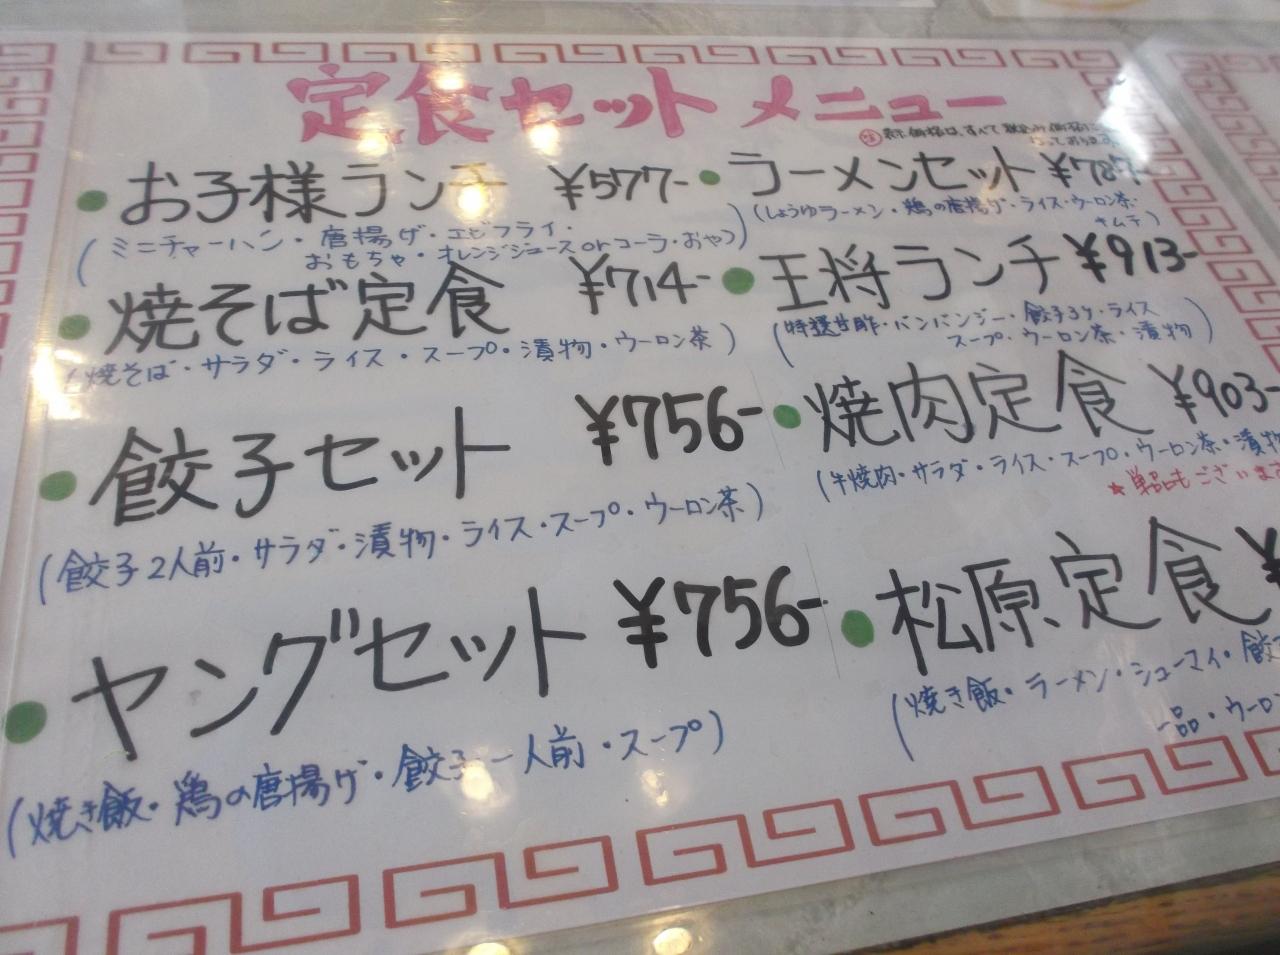 定食セットメニュー
㊟表示価格は、すべて税込み価格に
なっております
お子様ランチ ¥577-
(ミニチャーハン・唐揚げ・エビフライ・
おもちゃ・オレンジジュースorコーラ・おやつ)
焼そば定食 ¥714-
(焼そば・サラダ・ライス・スープ・漬物・ウーロン茶)
餃子セット ¥756-
(餃子2人前・サラダ・漬物・ライス・スープ・ウーロン茶)
ヤングセット ¥756-
(焼き飯・鶏の唐揚げ・餃子一人前・スープ)
ラーメンセット ¥787-
(しょうゆラーメン・鶏の唐揚げ・ライス・ウーロン茶・
キムチ)
王将ランチ ¥913-
(特選甘酢・バンバンジー・餃子3ケ・ライス
スープ・ウーロン茶・漬物)
焼肉定食 ¥903-
(牛焼肉・サラダ・ライス・スープ・ウーロン茶・漬物
★単品もございます
松原定食 ¥
(焼き飯・ラーメン・シューマイ・餃
一品・ウーロン